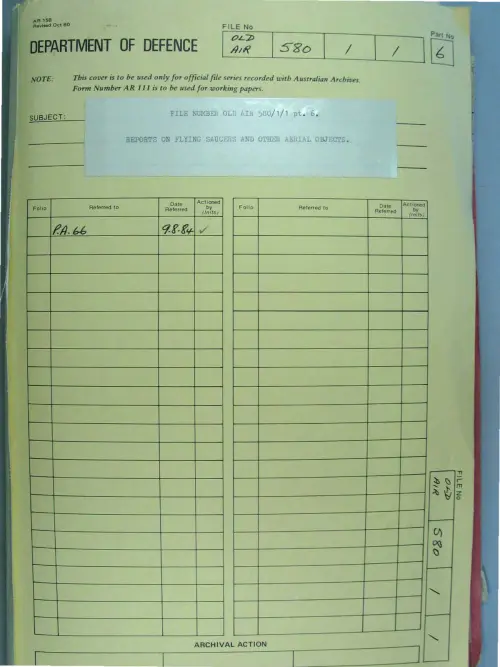 AR 156
Revised Oct 80
FILE No
Part No
DEPARTMENT OF DEFENCE
OLD AIR 580 / 1 / 1 6
NOTE: This cover is to be used only for official file series recorded with Australian Archives.
Form Number AR 111 is to be used for working papers.
SUBJECT:
FILE NUMBER OLD AIR 580/1/1 pt. 6.
REPORTS ON FLYING SAUCERS AND OTHER AERIAL OBJECTS.
Folio Referred to Date Referred Actioned by (Units) Folio Referred to Date Referred Actioned by (Units)
P.A. 66 9.8.84 ✓
FILE No
OLD AIR 580 / /
ARCHIVAL ACTION